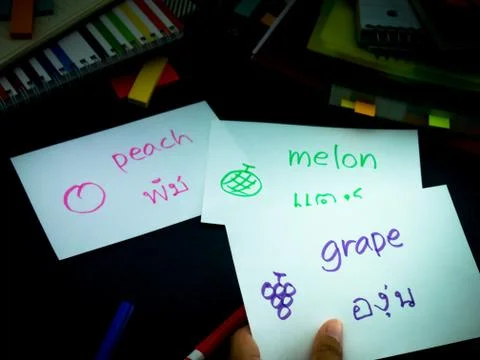 peach
พีช
melon
grape
องุ่น